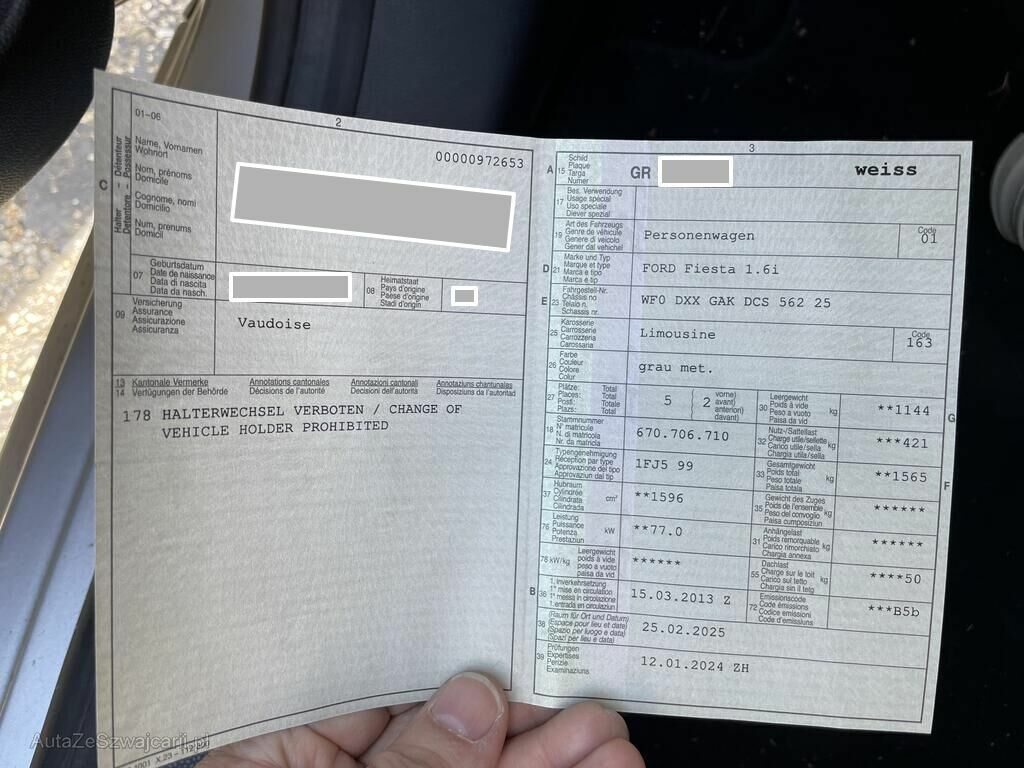 2
01-06
00000972653
Détenteur Possessur
Halter Detentore
C
Name, Vornamen
Wohnort
Nom, prénoms
Domicile
Cognome, nomi
Domicilio
Num, prenums
Domicil
07
Geburtsdatum
Date de naissance
Data di nascita
Data da nasch.
08
Heimatstaat
Pays d'origine
Paese d'origine
Stadi d'origin
09
Versicherung
Assurance
Assicurazione
Assicuranza
Vaudoise
13
14
Kantonale Vermerke Annotations cantonales Annotazioni cantonali Annotaziuns chantunalas
Verfügungen der Behörde Décisions de l'autorité Decisioni dell'autorità Disposiziuns da l'autoritad
178 HALTERWECHSEL VERBOTEN / CHANGE OF
VEHICLE HOLDER PROHIBITED
3
A 15
Schild
Plaque
Targa
Numer
GR
weiss
17
Bes. Verwendung
Usage spécial
Uso speciale
Diever spezial
19
Art des Fahrzeugs
Genre de véhicule
Genere di veicolo
Gener dal vehichel
Personenwagen
Code
01
D 21
Marke und Typ
Marque et type
Marca e tipo
Marca e tip
FORD Fiesta 1.6i
E 23
Fahrgestell-Nr.
Châssis no
Telaio n.
Schassis nr.
WF0 DXX GAK DCS 562 25
25
Karosserie
Carrosserie
Carrozzeria
Carossaria
Limousine
Code
163
26
Farbe
Couleur
Colore
Colur
grau met.
27
Plätze: Total
Places: Total
Posti: Totale
Plazs: Total
5
2
vorne)
avant)
anteriori)
davant)
30
Leergewicht
Poids à vide
Peso a vuoto
Paisa da vid
kg
**1144
G
18
Stammnummer
N° matricule
N. di matricola
Nr. da matricla
670.706.710
32
Nutz-/Sattellast
Charge utile/sellette
Carico utile/sella
Chargia utila/sella
kg
***421
24
Typengenehmigung
Réception par type
Approvazione del tipo
Approvaziun dal tip
1FJ5 99
33
Gesamtgewicht
Poids total
Peso totale
Paisa totala
kg
**1565
F
37
Hubraum
Cylindrée
Cilindrata
Cilindrada
cm³
**1596
35
Gewicht des Zuges
Poids de l'ensemble
Peso del convoglio
Paisa cumposiziun
kg
******
76
Leistung
Puissance
Potenza
Prestaziun
kW
**77.0
31
Anhängelast
Poids remorquable
Carico rimorchiato
Chargia annexa
kg
******
78 kW/kg
Leergewicht
poids à vide
peso a vuoto
paisa da vid
******
55
Dachlast
Charge sur le toit
Carico sul tetto
Chargia sin il tetg
kg
****50
B 36
1. Inverkehrsetzung
1re mise en circulation
1a messa in circolazione
1. entrada en circulaziun
15.03.2013 Z
72
Emissionscode
Code émissions
Codice emissioni
Code d'emissiuns
***B5b
38
(Raum für Ort und Datum)
(Espace pour lieu et date)
(Spazio per luogo e data)
(Spazi per lieu e data)
25.02.2025
39
Prüfungen
Expertises
Perizie
Examinaziuns
12.01.2024 ZH
AutaZeSzwajcarii.pl